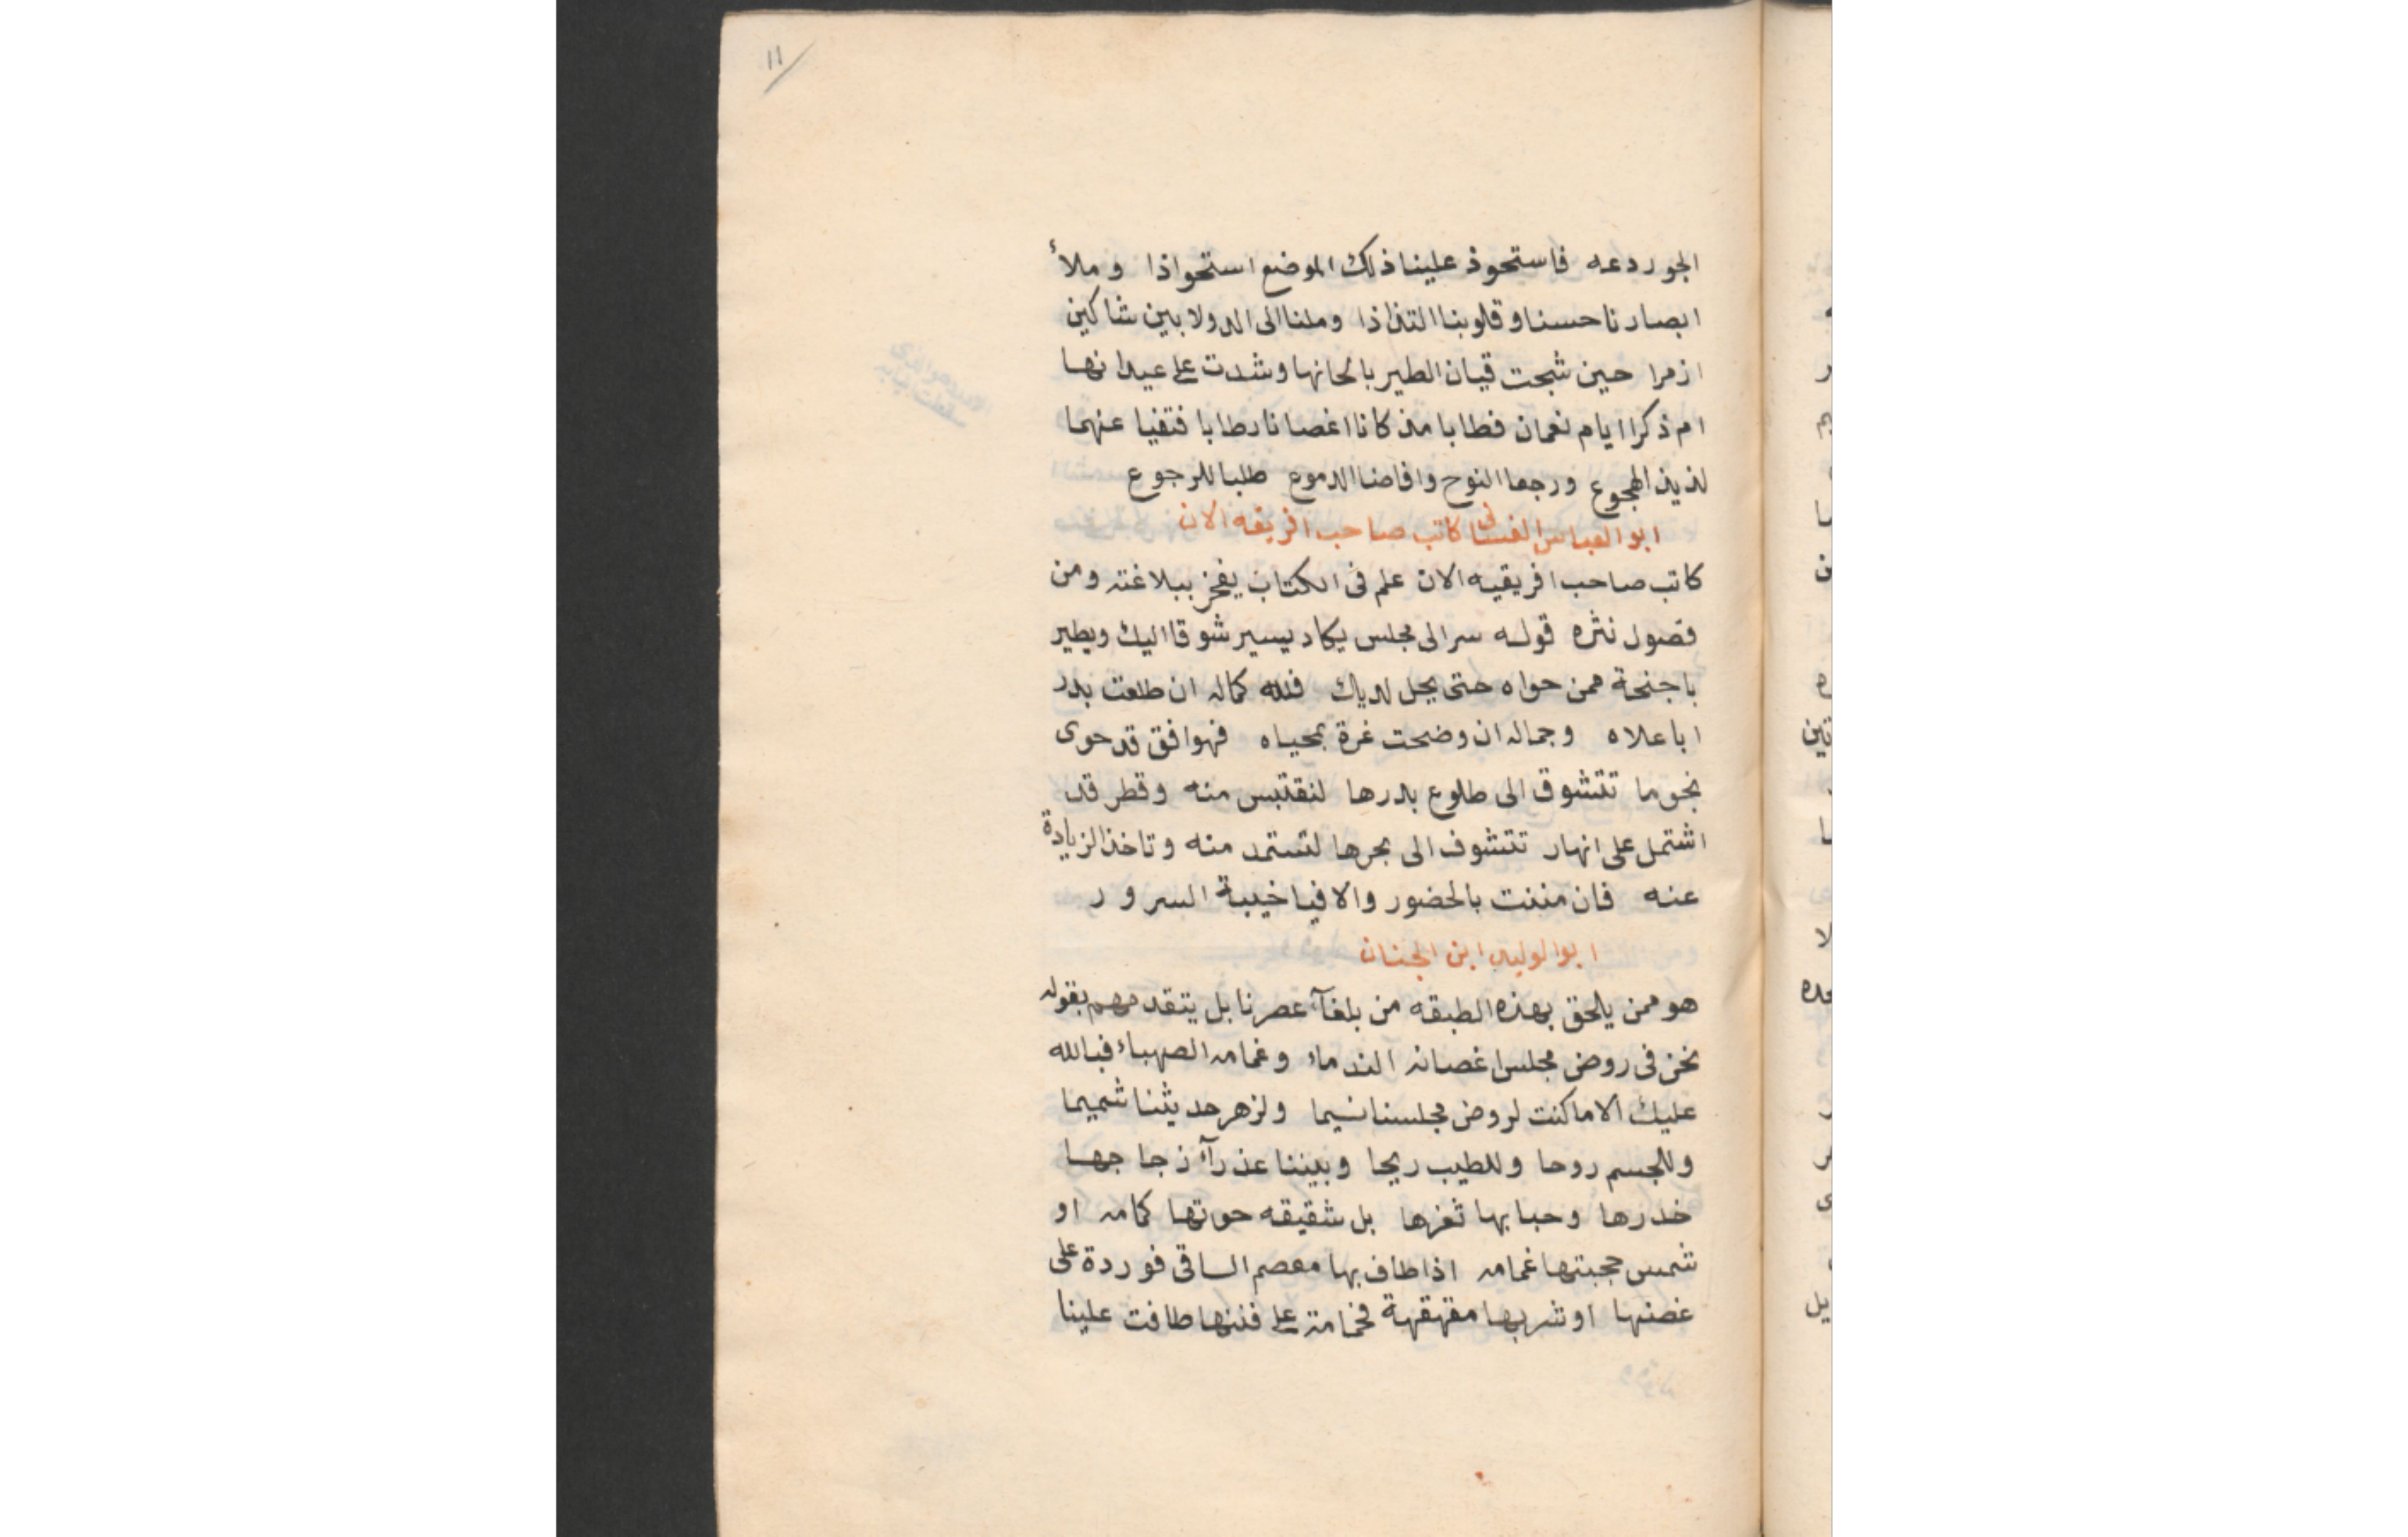 ١١
الجو ردعه فاستحوذ علينا ذلك الموضع استحواذا وملأ
ابصارنا حسنا وقلوبنا التذاذا وملنا الى الدولابين شاكين
ازمرا حين شجت قيان الطير بالحانها وشدت على عيدانها
ام ذكرا ايام نعمان فطابا منذ كانا اغصانا رطابا فنفيا عنهما
لذيذ الهجوع ورجعا النوح وافاضا الدموع طلبا للرجوع
ابو العباس الغسانى كاتب صاحب افريقه الان
كاتب صاحب افريقيه الان علم فى الكتاب يفخر ببلاغته ومن
فصول نثره قوله سر الى مجلس يكاد يسير شوقا اليك ويطير
باجنحة ممن حواه حتى يحل لديك فلله كماله ان طلعت بدر
ا باعلاه وجماله ان وضحت غرة بمحياه فهو افق قد حوى
نجوما تتشوق الى طلوع بدرها لنقتبس منه وقطر قد
اشتمل على انهار تتشوف الى بحرها لتستمد منه وتاخذ الزيادة
عنه فان مننت بالحضور والا فيا خيبة السرور
ابو الوليد ابن الجنان
هو ممن يلحق بهذه الطبقه من بلغآء عصرنا بل يتقدمهم بقوله
نحن فى روض مجلس اغصانه الندماء وغمامه الصهباء فبالله
عليك الا ما كنت لروض مجلسنا نسيما ولزهر حديثنا شميما
وللجسم روحا وللطيب ريحا وبيننا عذرآء زجاجها
خدرها وحبابها ثغرها بل شقيقه حوتها كمامه او
شمس حجبتها غمامه اذا طاف بها معصم الساقى فوردة على
غصنها او شربها مقهقهة فحمامة على فننها طافت علينا